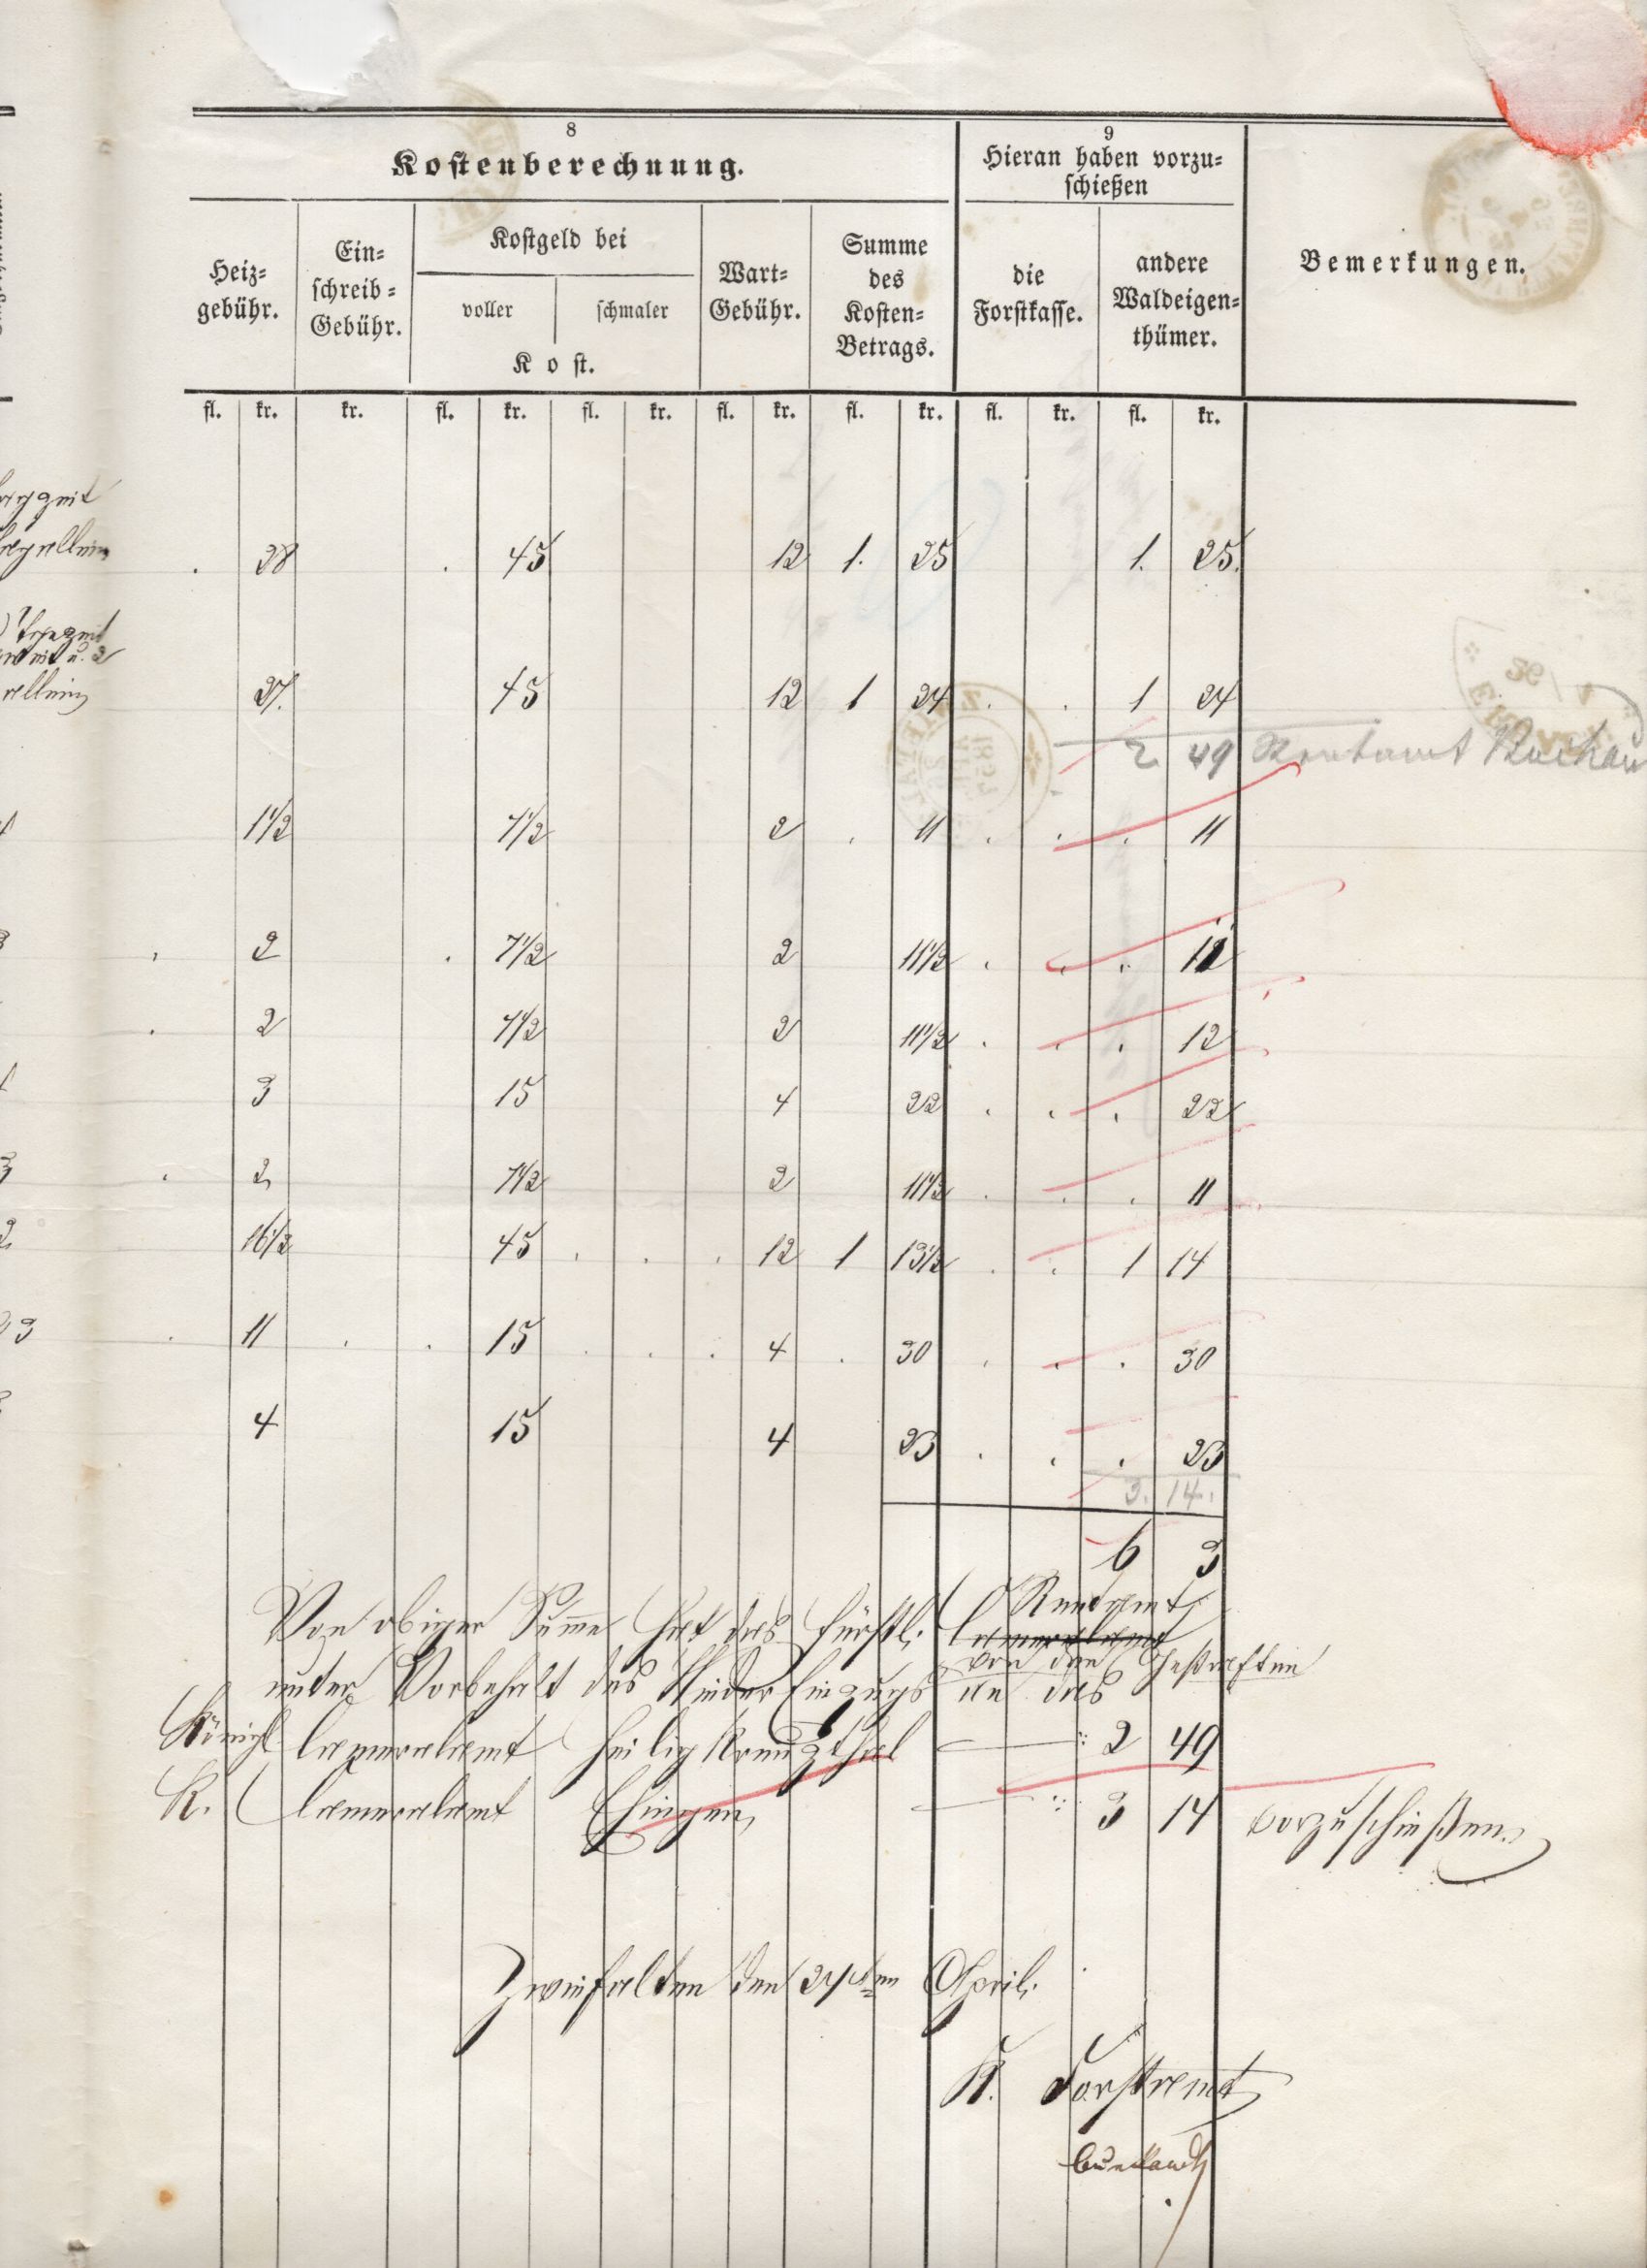 8
Kostenberechnung.
9
Hieran haben vorzu=
schießen
Bemerkungen.
Heiz=
gebühr.
Ein=
schreib=
Gebühr.
Kostgeld bei
voller schmaler
Kost.
Wart=
Gebühr.
Summe
des
Kosten=
Betrags.
die
Forstkasse.
andere
Waldeigen=
thümer.
fl. kr. kr. fl. kr. fl. kr. fl. kr. fl. kr. fl. kr. fl. kr.
. 28 . 45 12 1. 25 1. 25.
27. 45 12 1 24 . . 1 24
2. 49 Rentamt Buchau
1½ 7½ 2 . 11 . . . 11
. 2 . 7½ 2 11½ . . . 12
. 2 7½ 2 11½ . . . 12
3 15 4 22 . . . 22
. 2 7½ 2 11½ . . . 11
16½ 45 . . . 12 1 13½ . . 1 14
. 11 . . 15 . . . 4 . 30 . . . 30
4 15 4 23 . . . 23
3. 14.
6 3
Rentamt
Von obiger Summe hat das fürstl. Cameralamt
von den Gestraften
unter Vorbehalt des Wiedereinzugs an das
Königl Cameralamt Heiligkreuzthal — : 2 49
K. Cameralamt Ehingen, — : 3 14 vorzuschießen.
Zwiefalten den 27ten April.
K. Forstamt